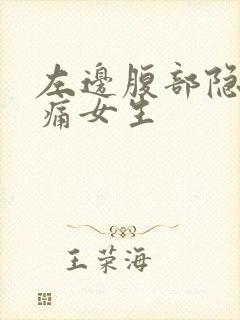 左邊腹部隐
痛女生
王荣海